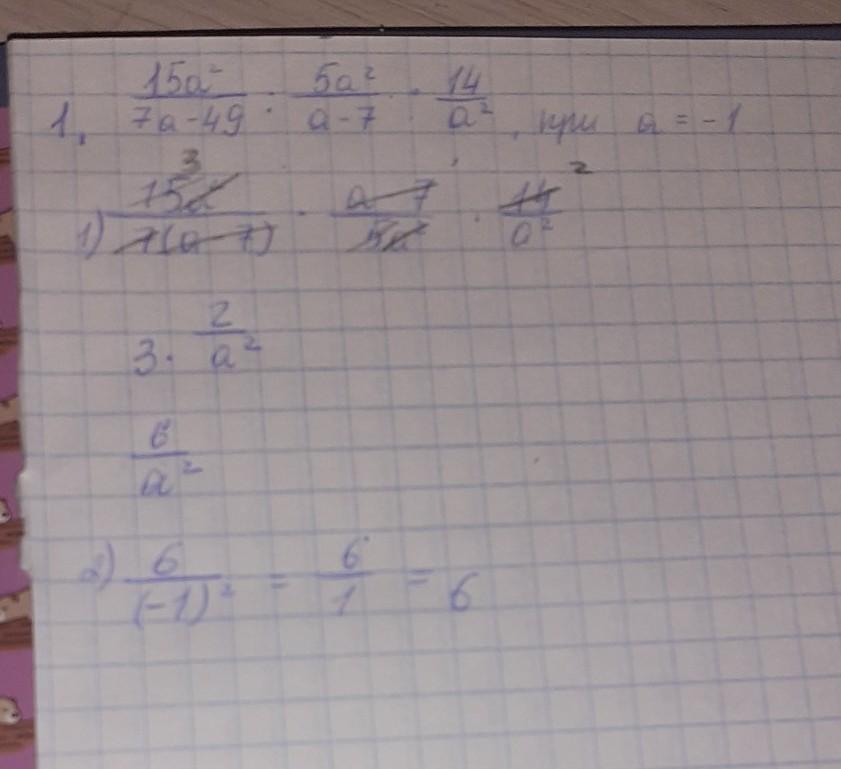 1, 15a²/(7a-49) : 5a²/(a-7) · 14/a², при a = -1
1) 15a/7(a-7) · (a-7)/5a · 14/a² 3 2
3 · 2/a²
6/a²
2) 6/(-1)² = 6/1 = 6